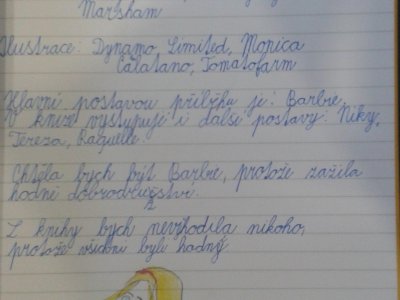 Marsham
Ilustrace: Dynamo, Limited, Monica
Catatano, Tomatofarm
Hlavní postavou příběhu je: Barbie.
V knize vystupují i další postavy: Niky,
Tereza, Raquelle.
Chtěla bych být Barbie, protože zažila
hodně dobrodružství.
Z knihy bych nevyhodila nikoho,
protože všichni byli hodný.